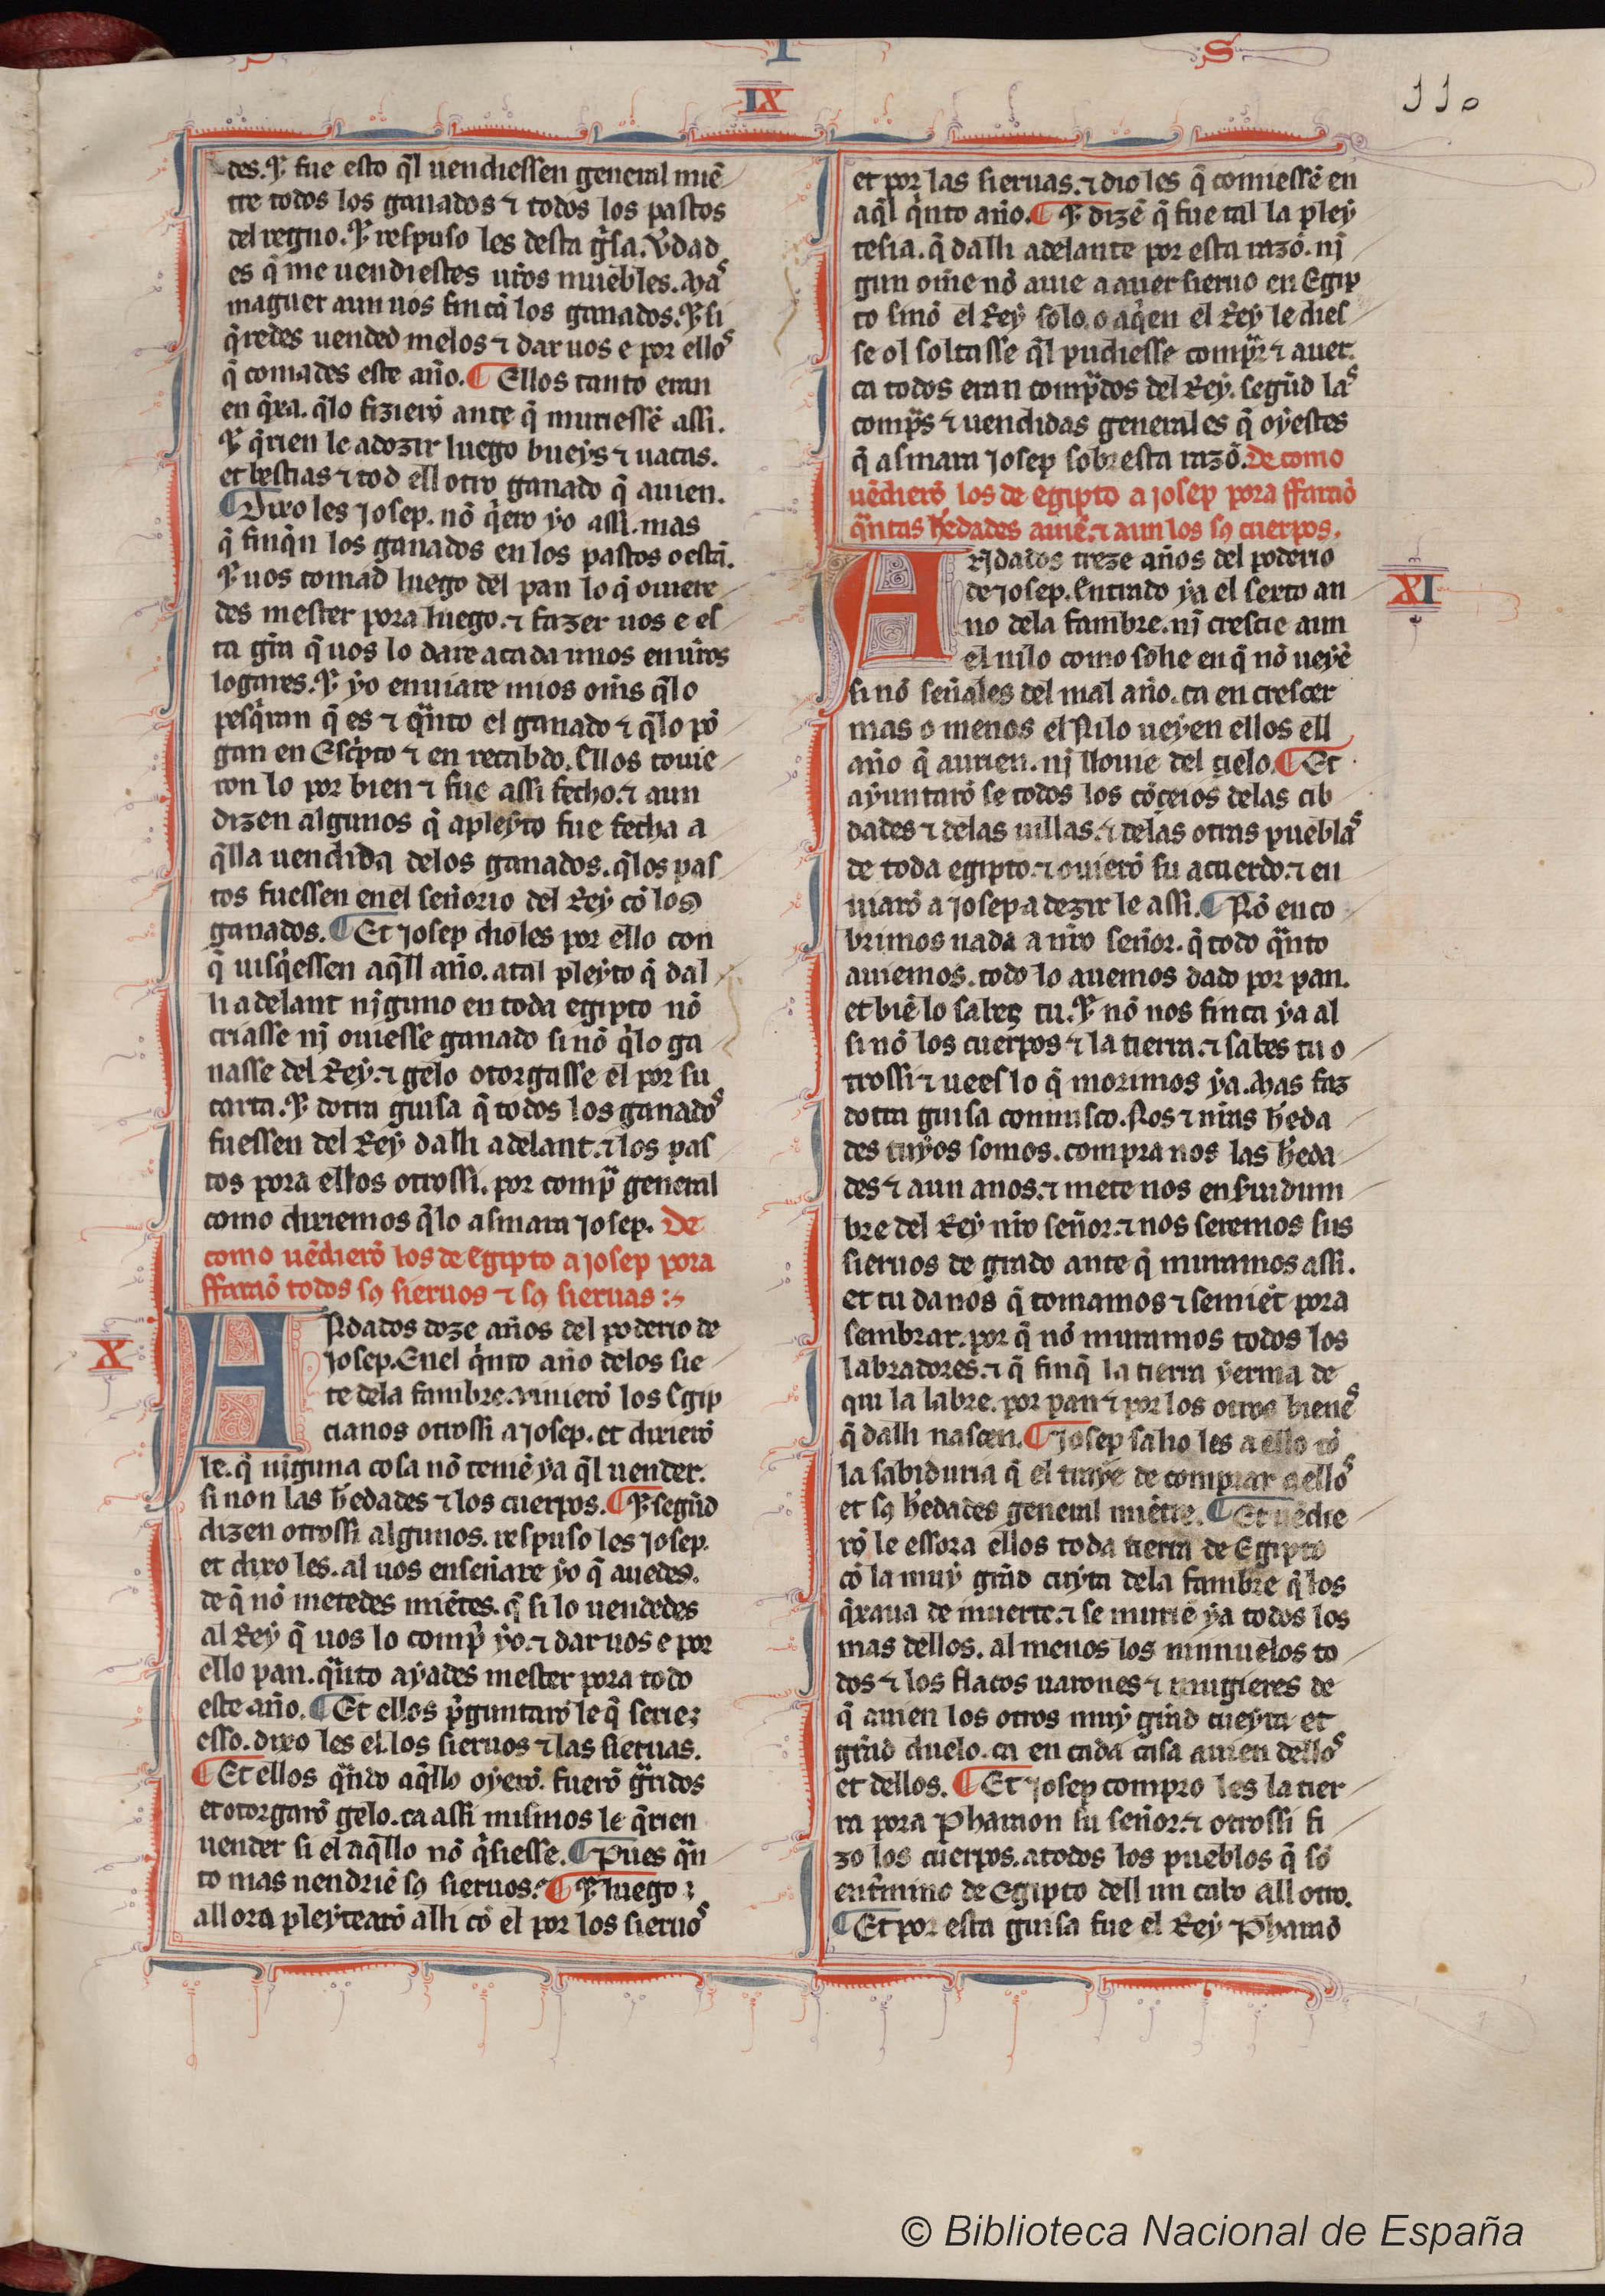 I S
IX
110
des. ⁊ fue esto q̃l uendiessen general miẽ
tre todos los ganados ⁊ todos los pastos
del regno. ⁊ respuso les desta gͥsa. Ũdad
es q̃ me uendiestes uros muebles. Mas
maguer aun uos fincã los ganados. ⁊ si
q̃redes uended melos ⁊ dar uos e por ellos
q̃ comades este año. ¶ Ellos tanto eran
en q̃xa. q̃lo fizierõ ante q̃ muriessẽ assi.
⁊ q̃rien le adozir luego bueys ⁊ uacas.
et bestias ⁊ tod ell otro ganado q̃ auien.
¶ Dixo les Josep. nõ qͥero yo assi. mas
q̃ finq̃n los ganados en los pastos o estã.
⁊ uos tomad luego del pan lo q̃ ouiere
des mester pora luego. ⁊ fazer uos e es
ta gͥa q̃ uos lo dare acada unos en uros
logares. ⁊ yo enuiare mios oms q̃lo
pesqͥran q̃ es ⁊ qͣnto el ganado ⁊ q̃lo põ
gan en Escͥpto ⁊ en recabdo. Ellos touie
ron lo por bien ⁊ fue assi fecho. ⁊ aun
dizen algunos q̃ apleyto fue fecha a
q̃lla uendida delos ganados. q̃los pas
tos fuessen enel señorio del Rey cõ los
ganados. ¶ Et Josep dioles por ello con
q̃ uisqͥessen aq̃ll año. atal pleyto q̃ dal
li adelant nĩguno en toda egipto nõ
criasse nĩ ouiesse ganado si nõ q̃lo ga
nasse del Rey. ⁊ gelo otorgasse el por su
carta. ⁊ dotra guisa q̃ todos los ganados
fuessen del Rey dalli adelant. ⁊ los pas
tos pora ellos otrossi. por compͣ general
como dixiemos q̃lo asmara Josep. De
como uẽdierõ los de Egipto a josep pora
ffaraõ todos sꝯ sieruos ⁊ sꝯ sieruas :~
X
ANdados doze años del poderio de
Josep. Enel qͥnto año delos sie
te dela fambre. uinierõ los Egip
cianos otrossi a Josep. et dixierõ
le. q̃ nĩguna cosa nõ teniẽ ya q̃l uender.
si non las hedades ⁊ los cuerpos. ¶ ⁊ segũd
dizen otrossi algunos. respuso les Josep.
et dixo les. al uos enseñare yo q̃ auedes.
de q̃ nõ metedes miẽtes. q̃ si lo uendedes
al Rey q̃ uos lo compͤ yo. ⁊ dar uos e por
ello pan. qͣnto ayades mester pora todo
este año. ¶ Et ellos pͤguntarõ le q̃ serie
esso. dixo les el. los sieruos ⁊ las sieruas.
¶ Et ellos qͣndo aq̃llo oyerõ. fuerõ pͣgados
et otorgarõ gelo. ca assi mismos le q̃rien
uender si el aq̃llo nõ qͥsiesse. ¶ Pues qͣn
to mas uendriẽ sꝯ sieruos. ¶ ⁊ luego
all ora pleytearõ alli cõ el por los sieruos
et por las sieruas. ⁊ dio les q̃ comiessẽ en
aq̃l qͥnto año. ¶ ⁊ dizẽ q̃ fue tal la pley
tesia. q̃ dalli adelante por esta razõ. nĩ
gun ome nõ auie a auer sieruo en Egip
to sinõ el Rey solo. o aqͥen el Rey le dies
se ol soltasse q̃l pudiesse compͣr ⁊ auer.
ca todos eran compͣdos del Rey. segũd las
compͣs ⁊ uendidas generales q̃ oyestes
q̃ asmara Josep sobresta razõ. De como
uẽdierõ los de egipto a josep pora ffaraõ
qͣntas hedades auiẽ. ⁊ aun los sꝯ cuerpos.
XI
ANdados treze años del poderio
de Josep. Entrado ya el sexto an
no dela fambre. nĩ crescie aun
el nilo como solie en q̃ nõ ueyẽ
si nõ señales del mal año. ca en crescer
mas o menos el Nilo ueyen ellos ell
año q̃ aurien. nĩ llouie del cielo. ¶ Et
ayuntarõ se todos los cõceios delas cib
dades ⁊ delas uillas. ⁊ delas otras pueblas
de toda egipto. ⁊ ouierõ su acuerdo. ⁊ en
uiarõ a josep a dezir le assi. ¶ Nõ enco
brimos nada a nro señor. q̃ todo qͣnto
auiemos. todo lo auemos dado por pan.
et biẽ lo sabes tu. ⁊ nõ nos finca ya al
si nõ los cuerpos ⁊ la tierra. ⁊ sabes tu o
trossi ⁊ uees lo q̃ morimos ya. Mas faz
dotra guisa connusco. Nos ⁊ nras heda
des tuyos somos. compra nos las heda
des ⁊ aun anos. ⁊ mete nos en suidum
bre del Rey nro señor. ⁊ nos seremos sus
sieruos de grado ante q̃ muramos assi.
et tu da nos q̃ comamos ⁊ semiẽt pora
sembrar. por q̃ nõ muramos todos los
labradores. ⁊ q̃ finq̃ la tierra yerma de
qui la labre. por pan ⁊ por los otros bienes
q̃ dalli nascen. ¶ Josep salio les a ello cõ
la sabiduria q̃ el traye de comprar a ellos
et sꝯ hedades general miẽtre. ¶ Et uẽdie
rõ le essora ellos toda tierra de Egipto
cõ la muy grãd cuyta dela fambre q̃ los
q̃xaua de muerte. ⁊ se murie ya todos los
mas dellos. al menos los ninnuelos to
dos ⁊ los flacos uarones ⁊ mugieres de
q̃ auien los otros muy grãd cueyta et
grãd duelo. ca en cada casa auien dellos
et dellos. ¶ Et Josep compro les la tier
ra pora Pharaon su señor. ⁊ otrossi fi
zo los cuerpos. atodos los pueblos q̃ sõ
en tmino de Egipto dell un cabo all otro.
¶ Et por esta guisa fue el Rey Pharaõ
© Biblioteca Nacional de España